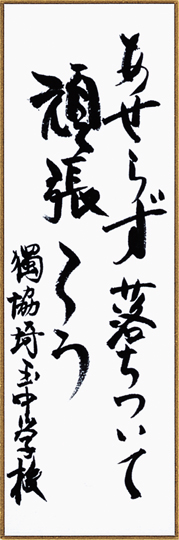 あせらず落ちついて
頑張ろう
獨協埼玉中学校